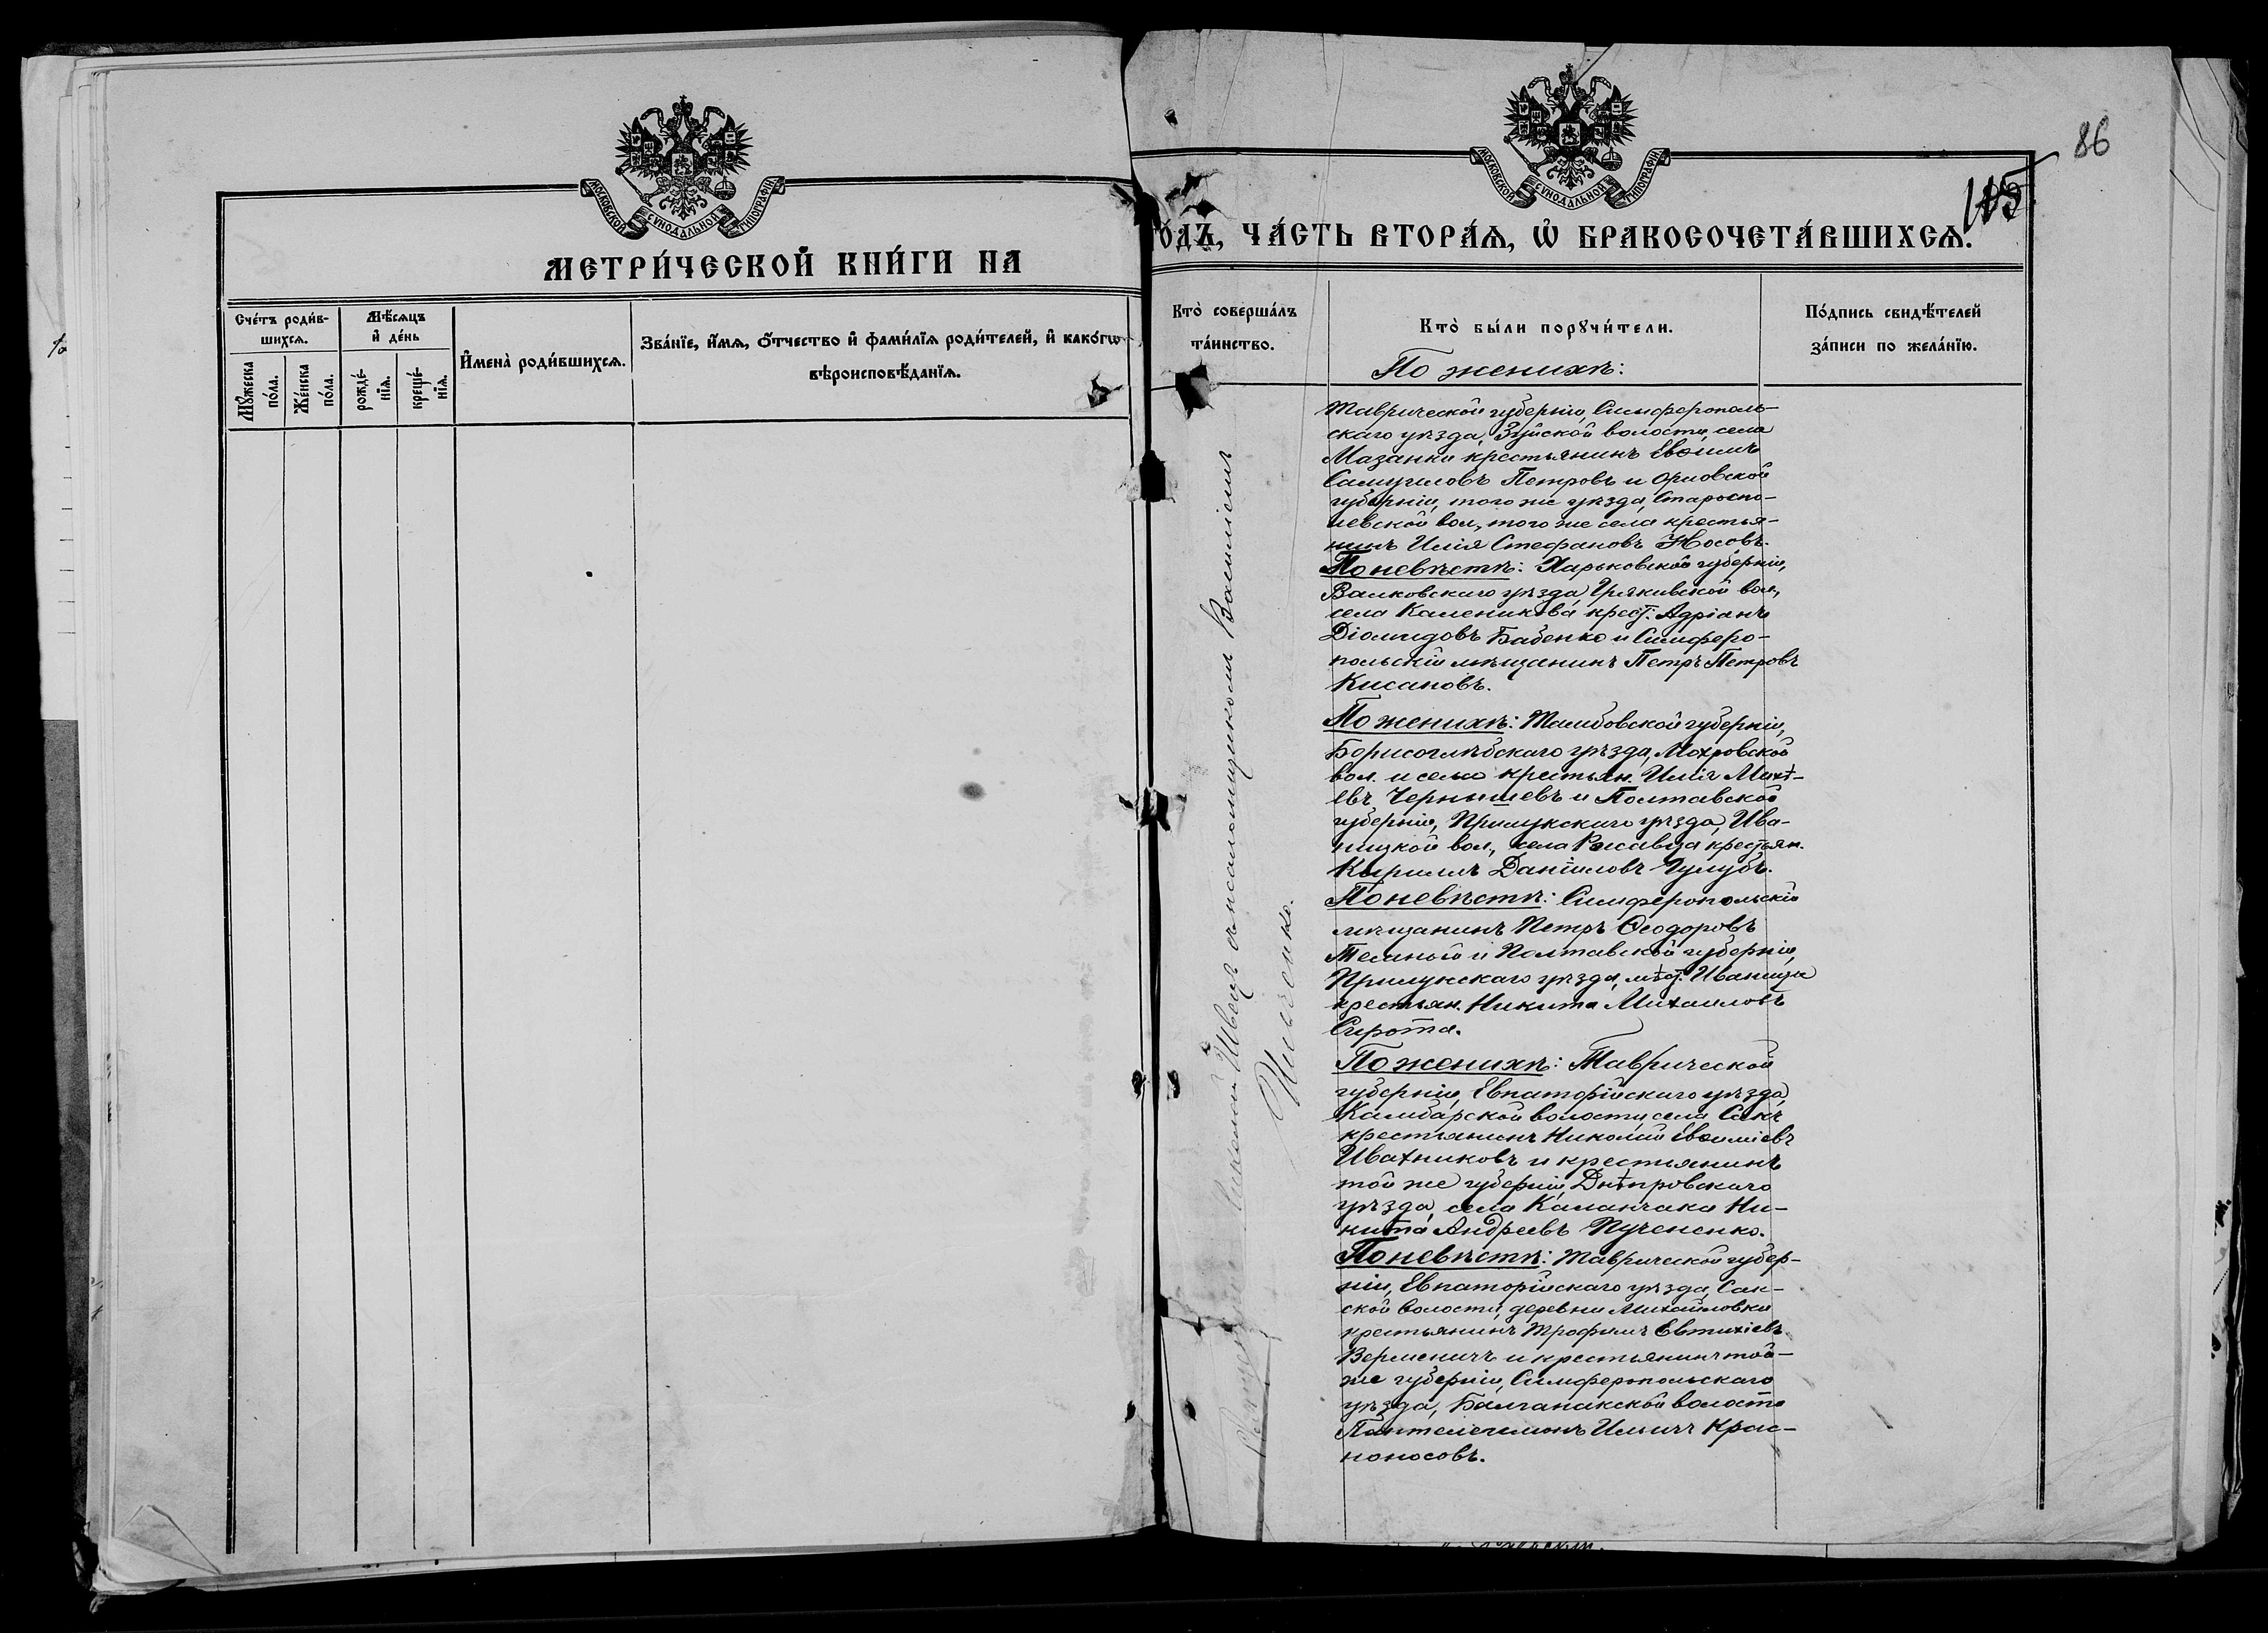 МОСКОВСКОЙ СѴНОДАЛЬНОЙ ТИПОГРАФІИ
МЕТРИ́ЧЕСКОЙ КНИ́ГИ НА
Сче́тъ роди́в-
шихсѧ.
Мѣ́сѧцъ
и҆ де́нь
Мꙋ́жеска
по́ла.
Же́нска
по́ла.
рожде́-
нїѧ.
креще́-
нїѧ.
И҆мена̀ роди́вшихсѧ.
Зва́нїе, и҆́мѧ, ѻ҆́тчество и҆ фами́лїѧ роди́телей, и҆ како́гѡ
вѣроисповѣ́данїѧ.
86
115
МОСКОВСКОЙ СѴНОДАЛЬНОЙ ТИПОГРАФІИ
О́ДЪ, ЧА́СТЬ ВТОРА́Ѧ, Ѡ҆ БРАКОСОЧЕТА́ВШИХСѦ.
Кто̀ соверша́лъ
та́инство.
Кто̀ бы́ли порꙋчи́тели.
По́дпись свидѣ́телей
за́писи по жела́нїю.
По женихѣ:
Таврической губерніи, Симферополь-
скаго уѣзда, Зуйской волости, села
Мазанки крестьянинъ Евѳимъ
Самуиловъ Петровъ и Орловской
губерніи, того же уѣзда,
вол., того же села крестья-
нинъ Илія Стефановъ Носовъ.
По невѣстѣ: Харьковской губерніи,
Валковскаго уѣзда, вол.,
села крест. Адріанъ
Діомидовъ Бабенко и Симферо-
польскій мѣщанинъ Петръ Петровъ
Кисановъ.
По женихѣ: Тамбовской губерніи,
Борисоглѣбскаго уѣзда, Моховской
вол. и села крестьян. Илія
Чернышевъ и Полтавской
губерніи, Прилукскаго уѣзда, Ива-
ницкой вол., села крестьян.
Кириллъ Даніиловъ Гулубъ.
По невѣстѣ: Симферопольскій
мѣщанинъ Петръ Ѳеодоровъ
и Полтавской губерніи,
Прилукскаго уѣзда, мѣст. Иваница
крестьян. Никита Михаиловъ
Сирота.
По женихѣ: Таврической
губерніи, Евпаторійскаго уѣзда,
Камбарской волости, села Сакъ
крестьянинъ Николай Евѳиміевъ
Ивахниковъ и крестьянинъ
той же губерніи, Днѣпровскаго
уѣзда, села Каланчака Ни-
кита Андреевъ Пученко.
По невѣстѣ: Таврической губер-
ніи, Евпаторійскаго уѣзда, Сак-
ской волости, деревни Михайловки
крестьянинъ Трофимъ Евтихіевъ
Верменичъ и крестьянинъ той-
же губерніи, Симферопольскаго
уѣзда, Балганакской волости
Пантелеимонъ Ильичъ Крас-
ноносовъ.
Николай Швецъ съ псаломщикомъ Василіемъ
Ильченко.